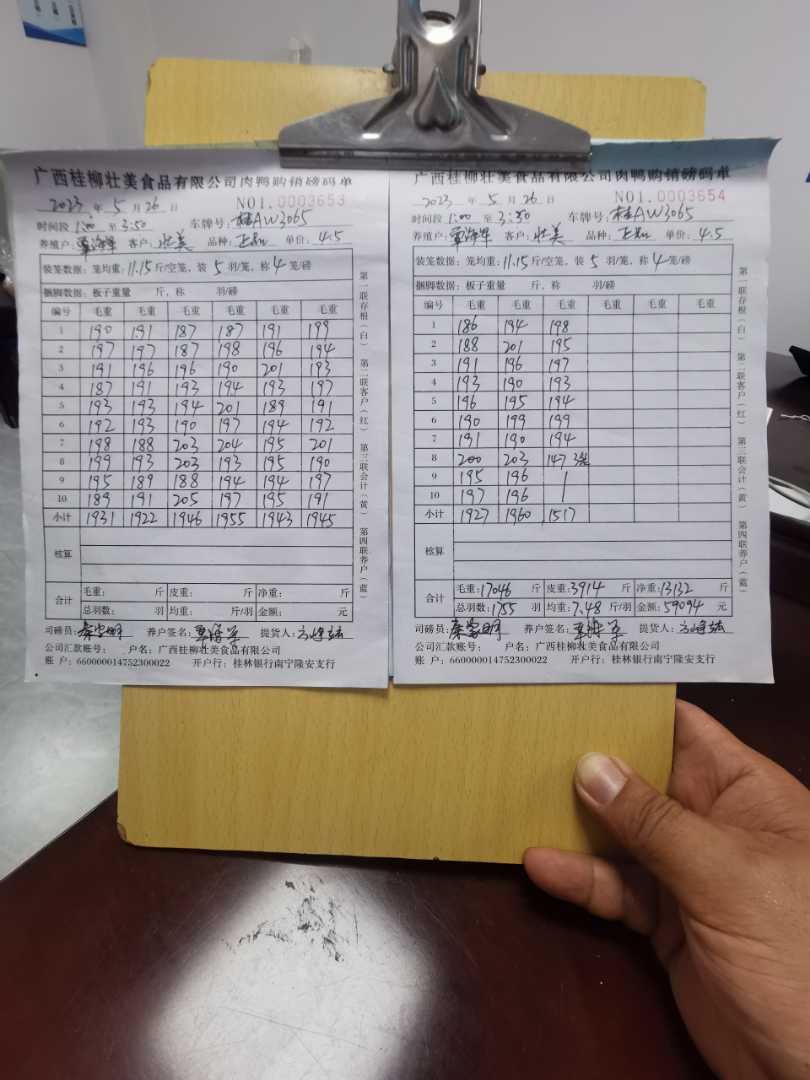 广西桂柳壮美食品有限公司肉鸭购销磅码单
2023 年 5 月 26 日 NO1.0003653
时间段 1:00 至 3:50 车牌号:桂AW3065
养殖户: 客户:壮美 品种: 单价:4.5
装笼数据:笼均重:11.15斤/空笼,装 5 羽/笼,称 4 笼/磅
捆脚数据:板子重量 斤,称 羽/磅
编号 毛重 毛重 毛重 毛重 毛重 毛重
1 190 191 187 187 191 199
2 197 197 187 198 196 194
3 191 196 196 190 201 193
4 187 191 193 194 193 197
5 193 193 194 201 189 191
6 192 193 190 197 194 192
7 198 188 203 204 195 201
8 199 193 203 193 195 190
9 195 189 188 194 194 197
10 189 191 205 197 195 191
小计 1931 1922 1946 1955 1943 1945
核算
合计 毛重: 斤 皮重: 斤 净重: 斤
总羽数: 羽 均重: 斤/羽 金额: 元
司磅员: 养户签名: 提货人:
公司汇款账号: 户名:广西桂柳壮美食品有限公司
账 户:660000014752300022 开户行:桂林银行南宁隆安支行
第一联存根(白) 第二联客户(红) 第三联会计(黄) 第四联养户(蓝)
广西桂柳壮美食品有限公司肉鸭购销磅码单
2023 年 5 月 26 日 NO1.0003654
时间段 1:00 至 3:50 车牌号:桂AW3065
养殖户: 客户:壮美 品种: 单价:4.5
装笼数据:笼均重:11.15斤/空笼,装 5 羽/笼,称 4 笼/磅
捆脚数据:板子重量 斤,称 羽/磅
编号 毛重 毛重 毛重 毛重 毛重 毛重
1 186 194 198
2 188 201 195
3 191 196 197
4 193 190 193
5 196 195 194
6 190 199 199
7 191 190 194
8 200 203 147
9 195 196
10 197 196
小计 1927 1960 1517
核算
合计 毛重:17046 斤 皮重:3914 斤 净重:13132 斤
总羽数:1755 羽 均重:7.48 斤/羽 金额:59094 元
司磅员: 养户签名: 提货人:
公司汇款账号: 户名:广西桂柳壮美食品有限公司
账 户:660000014752300022 开户行:桂林银行南宁隆安支行
第一联存根(白) 第二联客户(红) 第三联会计(黄) 第四联养户(蓝)